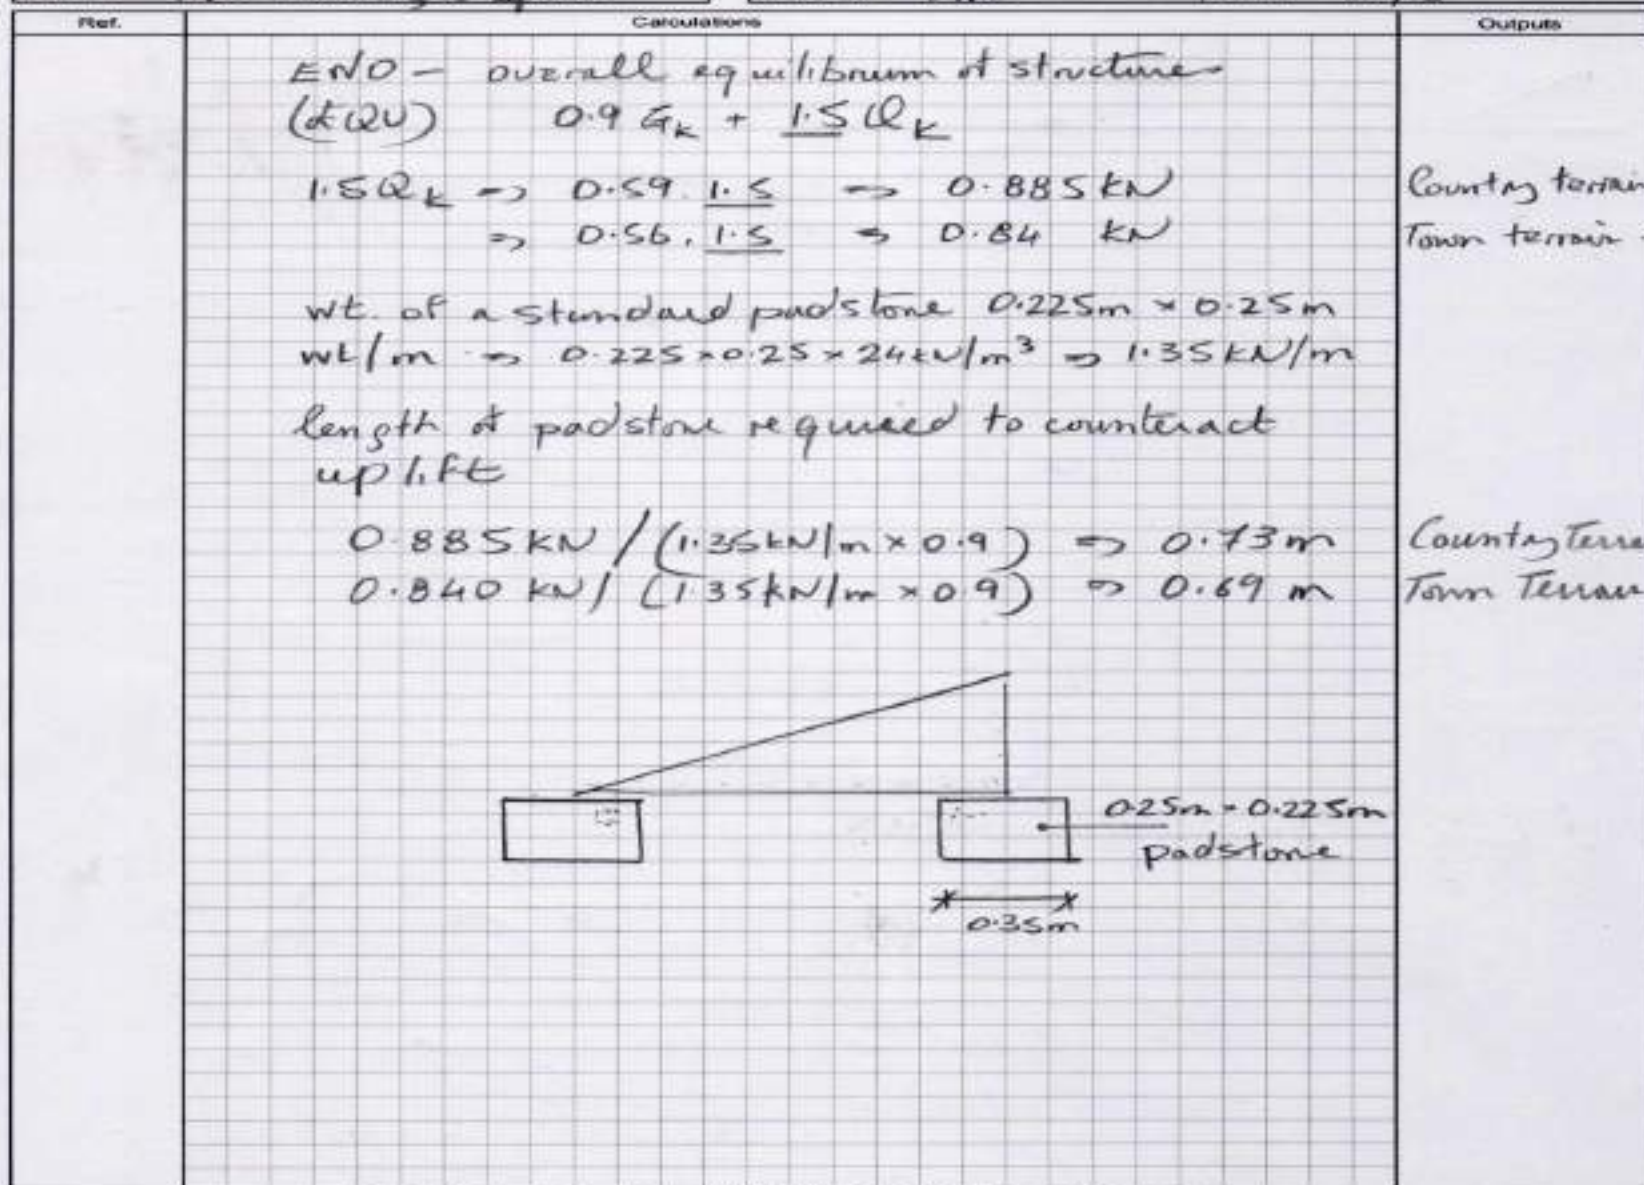 Ref. Calculations Outputs
EN0 - overall equilibrium of structure
(EQU) 0.9 Gk + 1.5 Qk
1.5Qk => 0.59 . 1.5 => 0.885 kN Country terrain
=> 0.56 . 1.5 => 0.84 kN Town terrain
wt. of a standard padstone 0.225m × 0.25m
wt/m => 0.225 × 0.25 × 24kN/m³ => 1.35 kN/m
length of padstone required to counteract
uplift
0.885 kN / (1.35kN/m × 0.9) => 0.73m Country Terra
0.840 kN / (1.35kN/m × 0.9) => 0.69 m Town Terrai
0.25m × 0.225m
padstone
0.35m